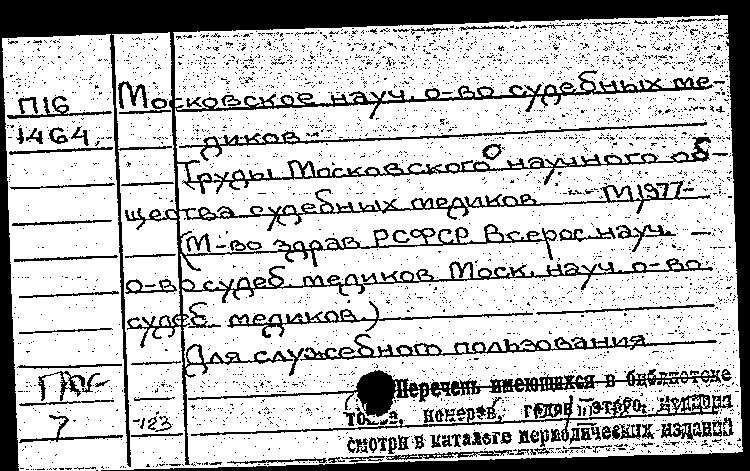 П16 Московское науч. о-во судебных ме-
1464. диков.
Труды Московского научного об-
щества судебных медиков. — М., 1977-
(М-во здрав. РСФСР. Всерос. науч.
о-во судеб. медиков. Моск. науч. о-во
судеб. медиков.)
Для служебного пользования
Перечень имеющихся в библиотеке
7 123 томов, номеров, годов этого издания
смотри в каталоге периодических изданий